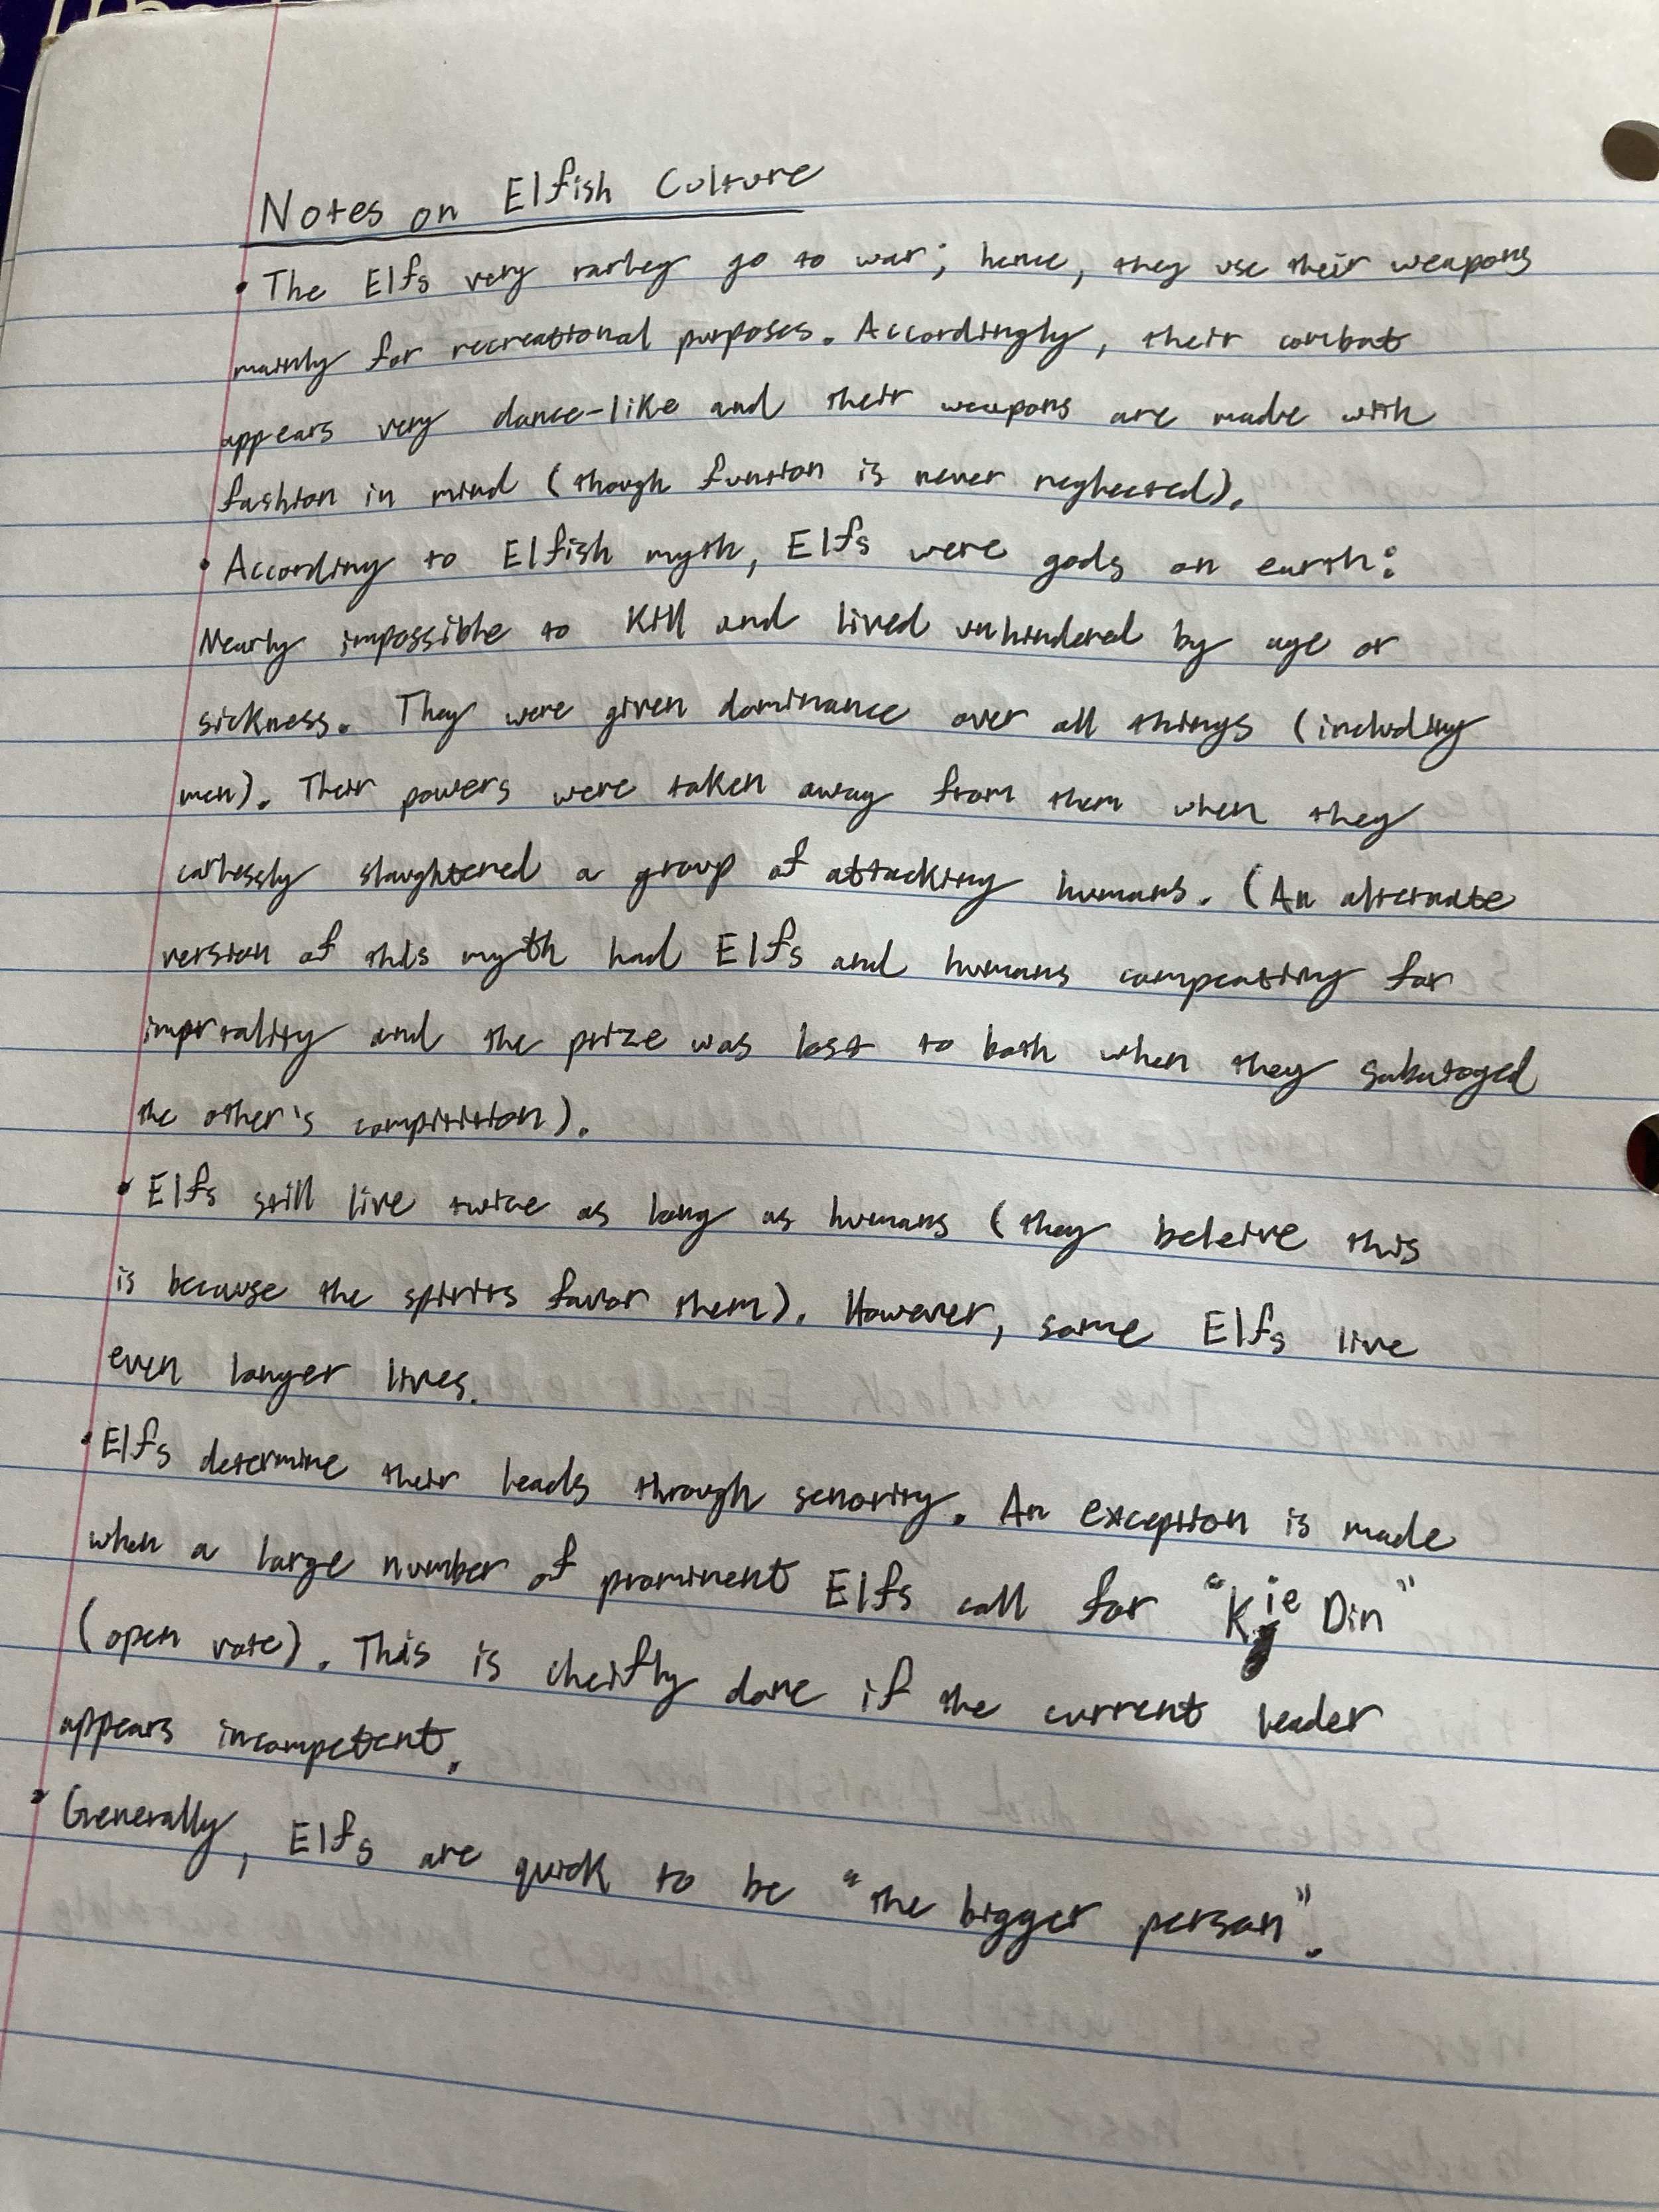 Notes on Elfish Culture
• The Elfs very rarley go to war; hence, they use their weapons
mainly for recreational purposes. Accordingly, their combat
appears very dance-like and their weapons are made with
fashion in mind (though function is never neglected).
• According to Elfish myth, Elfs were gods on earth:
Nearly impossible to kill and lived unhindered by age or
sickness. They were given dominance over all things (including
men). Their powers were taken away from them when they
carlessly slaughtered a group of attacking humans. (An alternate
version of this myth had Elfs and humans compeating for
imprtality and the prize was lost to both when they sabutoged
the other's compitition).
• Elfs still live twice as long as humans (they beleive this
is because the spirits favor them). However, some Elfs live
even longer lives.
• Elfs determine their leads through senority. An exception is made
when a large number of prominent Elfs call for "Kie Din"
(open vote). This is cheifly done if the current leader
appears incompetent.
• Generally, Elfs are quick to be "the bigger person".